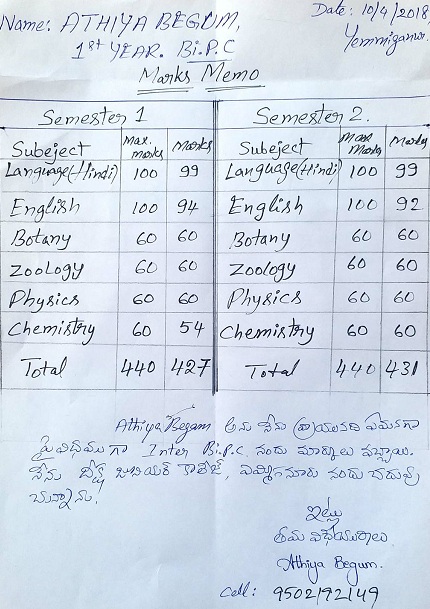 Name: ATHIYA BEGUM,
Date: 10/4/2018
1st YEAR. Bi.P.C
Yemmiganur.
Marks Memo
Semester 1
Semester 2.
Subeject Max. marks Marks
Subject Max Marks Marks
Language(Hindi) 100 99 Language(Hindi) 100 99
English 100 94 English 100 92
Botany 60 60 Botany 60 60
Zoology 60 60 Zoology 60 60
Physics 60 60 Physics 60 60
Chemistry 60 54 Chemistry 60 60
Total 440 427 Total 440 431
Athiya Begam అను నేను వ్రాయునది ఏమనగా
పై విధముగా Inter Bi.P.C. నందు మార్కులు వచ్చాయి.
నేను జూనియర్ కాలేజ్, ఎమ్మిగనూరు నందు చదువు
చున్నాను.
ఇట్లు
తమ విధేయురాలు
Athiya Begum.
Cell: 9502192149